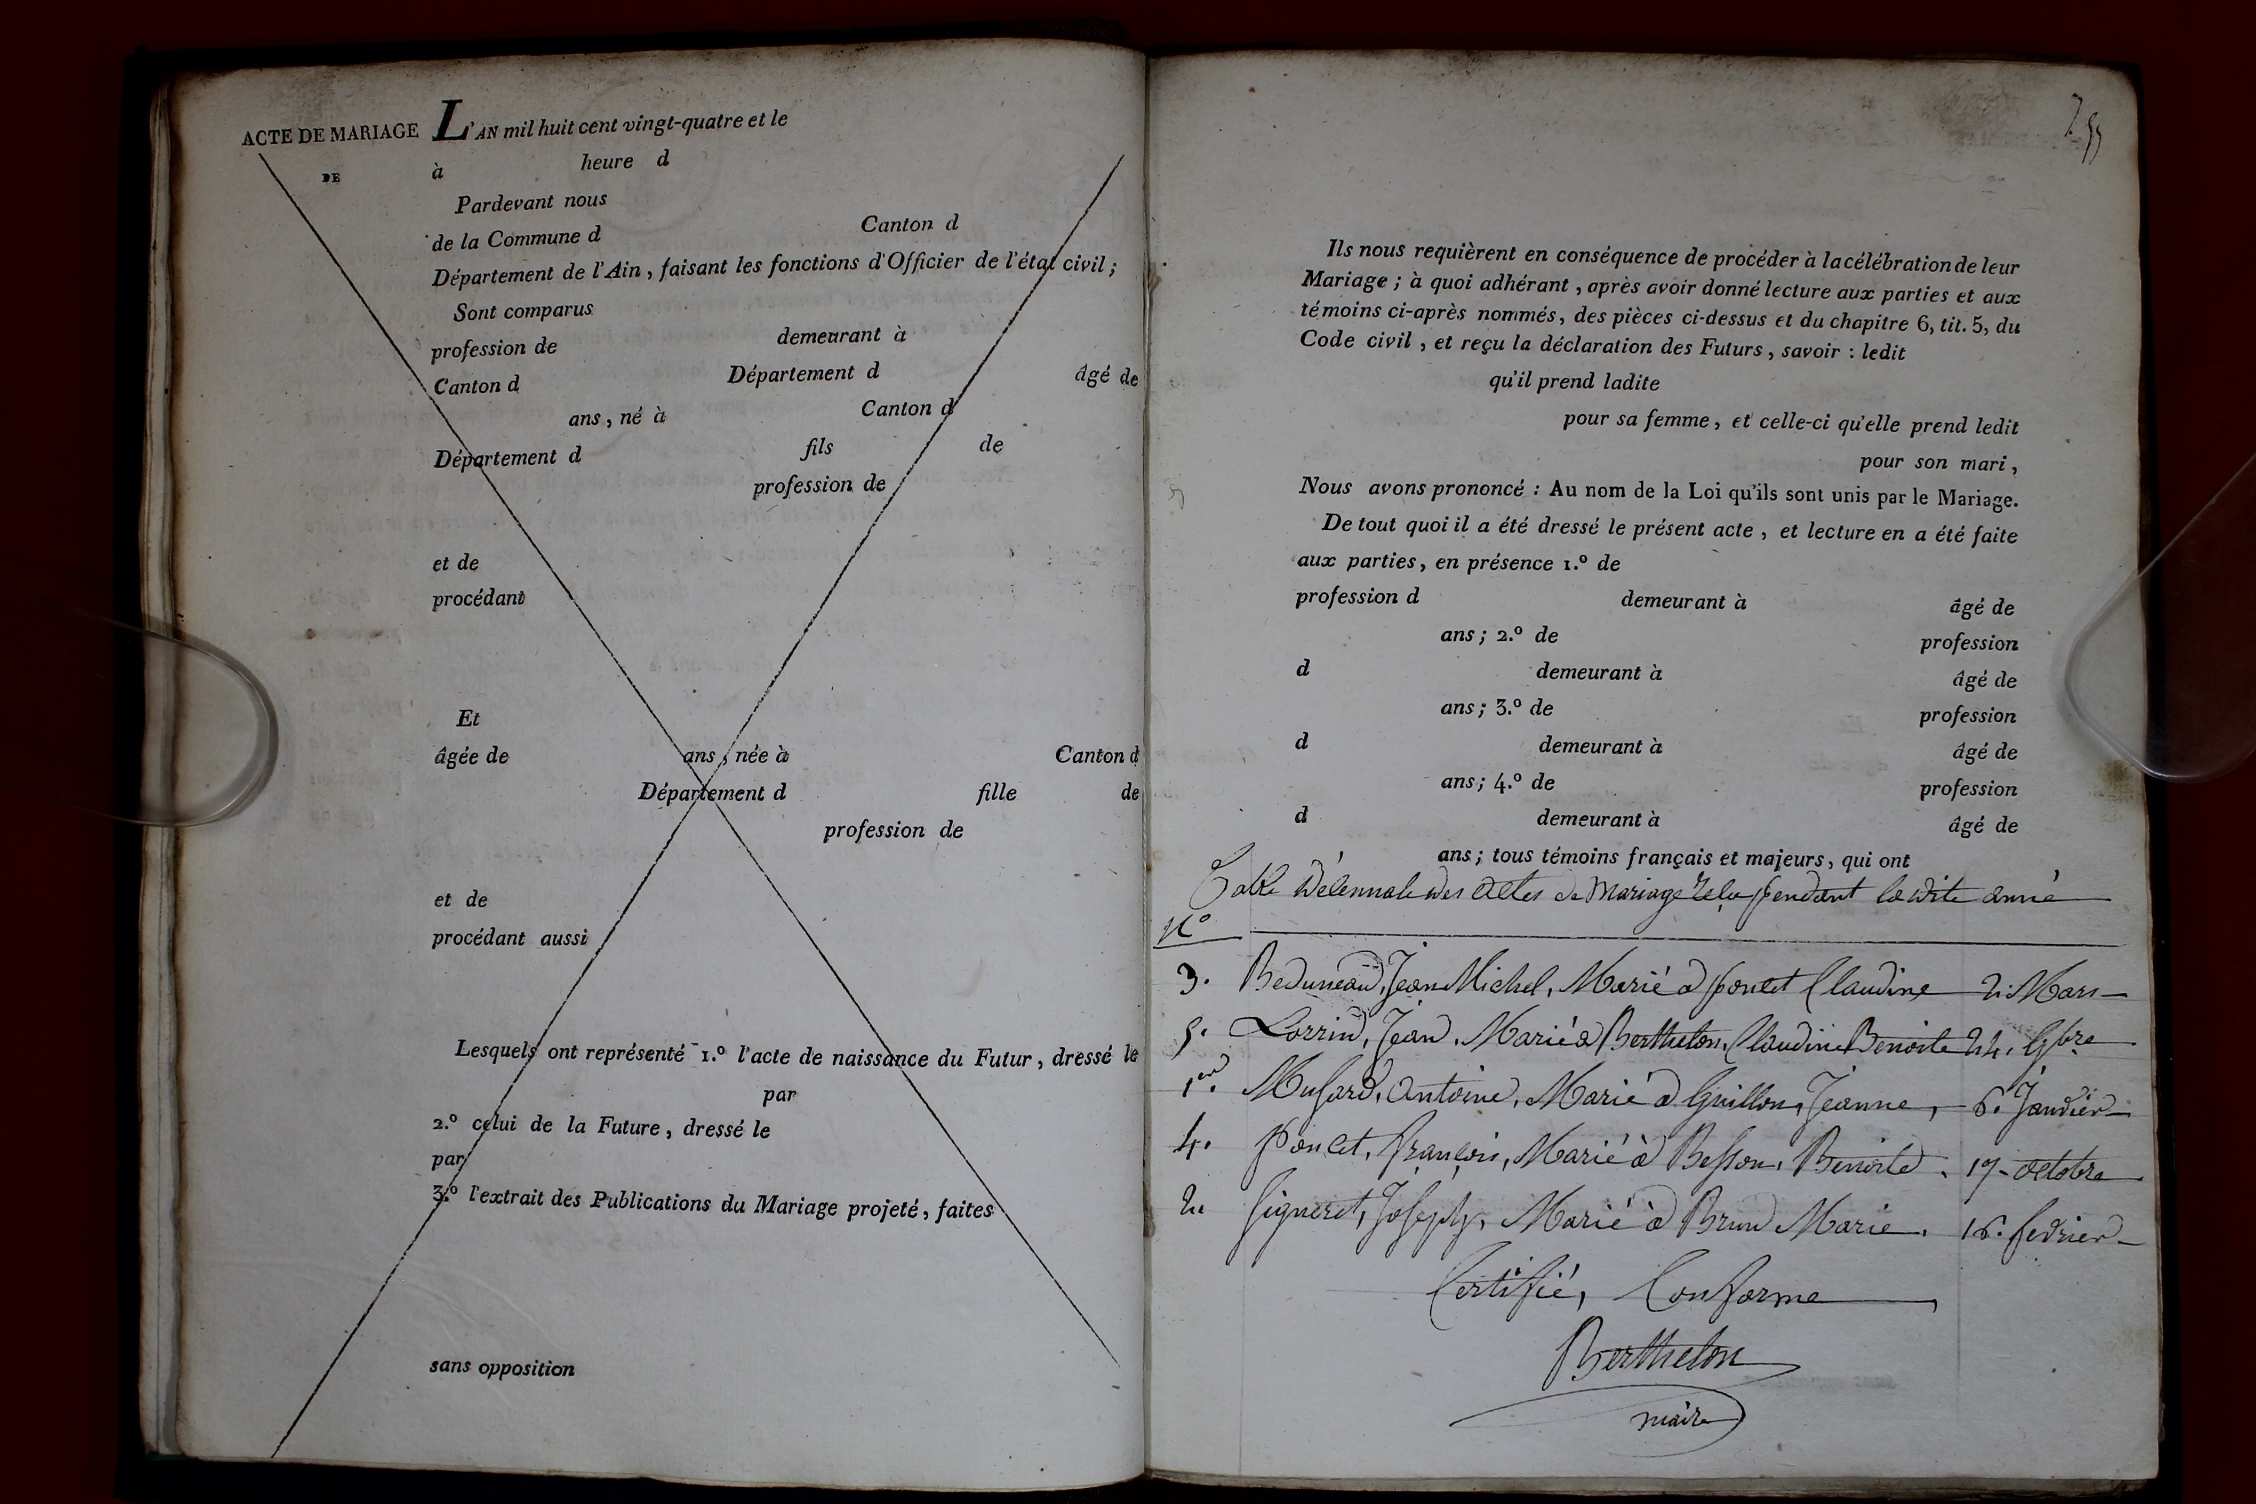 ACTE DE MARIAGE
DE
L'AN mil huit cent vingt-quatre et le
à heure d
Pardevant nous
de la Commune d Canton d
Département de l'Ain, faisant les fonctions d'Officier de l'état civil;
Sont comparus
profession de demeurant à
Canton d Département d âgé de
ans, né à Canton d
Département d fils de
profession de
et de
procédant
Et
âgée de ans, née à Canton d
Département d fille de
profession de
et de
procédant aussi
Lesquels ont représenté 1.º l'acte de naissance du Futur, dressé le
par
2.º celui de la Future, dressé le
par
3.º l'extrait des Publications du Mariage projeté, faites
sans opposition
Ils nous requièrent en conséquence de procéder à la célébration de leur
Mariage; à quoi adhérant, après avoir donné lecture aux parties et aux
témoins ci-après nommés, des pièces ci-dessus et du chapitre 6, tit. 5, du
Code civil, et reçu la déclaration des Futurs, savoir : ledit
qu'il prend ladite
pour sa femme, et celle-ci qu'elle prend ledit
pour son mari,
Nous avons prononcé : Au nom de la Loi qu'ils sont unis par le Mariage.
De tout quoi il a été dressé le présent acte, et lecture en a été faite
aux parties, en présence 1.º de
profession d demeurant à âgé de
ans; 2.º de profession
d demeurant à âgé de
ans; 3.º de profession
d demeurant à âgé de
ans; 4.º de profession
d demeurant à âgé de
ans; tous témoins français et majeurs, qui ont
Table des Actes de Mariage pendant la dite année
Nº
3. Beduneau, Jean Michel, Marié à poncet Claudine 2. Mars
5. Lorrin, Jean, Marié à Berthelon, Claudine Benoite 24. 9bre
1er. Musard, Antoine, Marié à Guillon, Jeanne, 6. Janvier
4. Poncet, françois, Marié à Besson, Benoite, 19. octobre
2. Signeret, Joseph, Marié à Brun Marie. 16. fevrier
Certifié, Conforme
Berthelon
maire